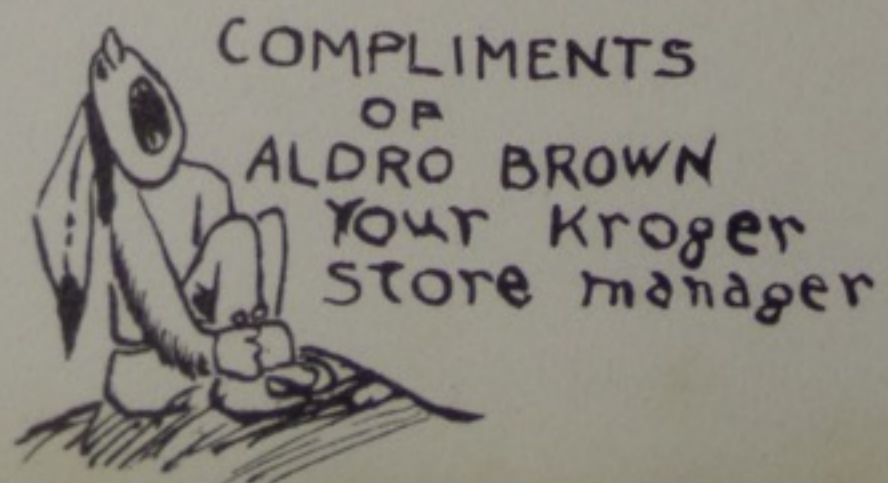 COMPLIMENTS
OF
ALDRO BROWN
Your Kroger
Store manager